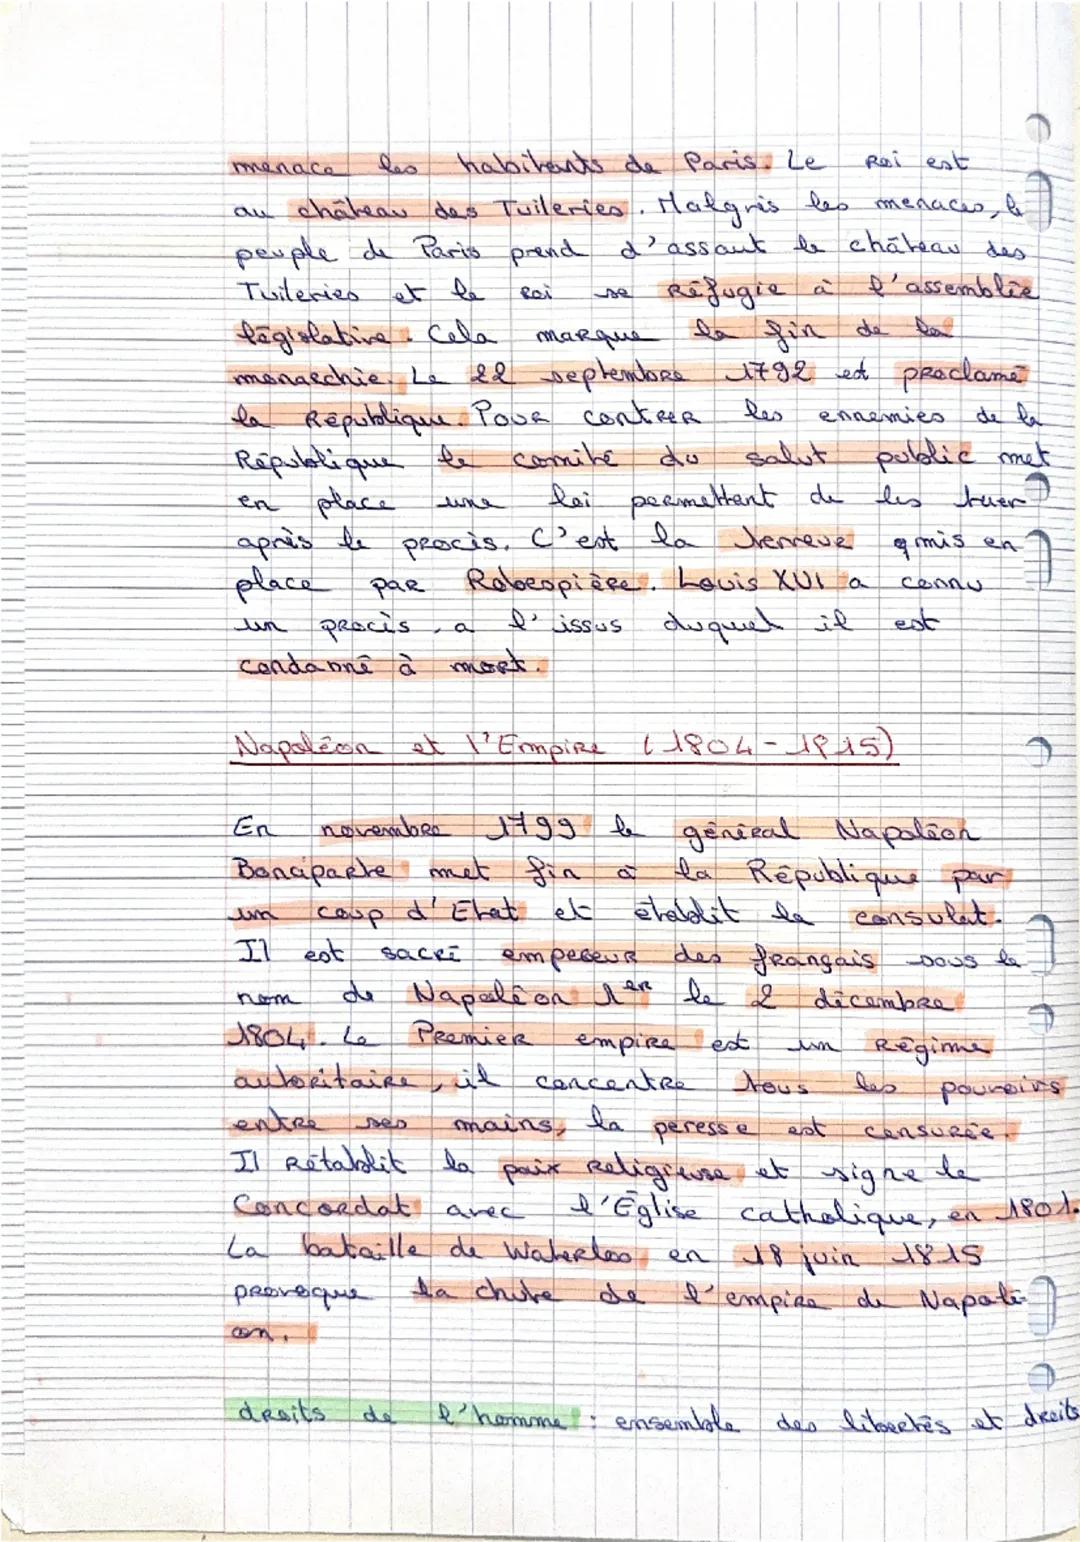 menace les habitants de Paris. Le Roi est
au château des Tuileries. Malgrès les menaces, le
peuple de Paris prend d'assaut le château des
Tuileries et le Roi se Réfugie à l'assemblée
législative. Cela marque la fin de la
monarchie. Le 22 septembre 1792 est proclamé
la République. Pour contrer les ennemies de la
République le comité du salut public met
en place une loi permettant de les tuer
après le procès. C'est la Terreur q mis en
place par Robespière. Louis XVI a connu
un procès, a l'issus duquel il est
condamné à mort.
Napoléon et l'Empire (1804-1815)
En novembre 1799 le général Napoléon
Bonaparte met fin à la République par
un coup d'Etat et établit le consulat.
Il est sacré empereur des français sous le
nom de Napoléon 1er le 2 décembre
1804. Le Premier empire est un Régime
autoritaire, il concentre tous les pouvoirs
entre ses mains, la peresse est censurée.
Il Rétablit la paix Religieuse et signe le
Concordat avec l'Église catholique, en 1801.
La bataille de Waterloo en 18 juin 1815
provoque la chute de l'empire de Napolé-
on.
droits de l'homme : ensemble des libertés et droits